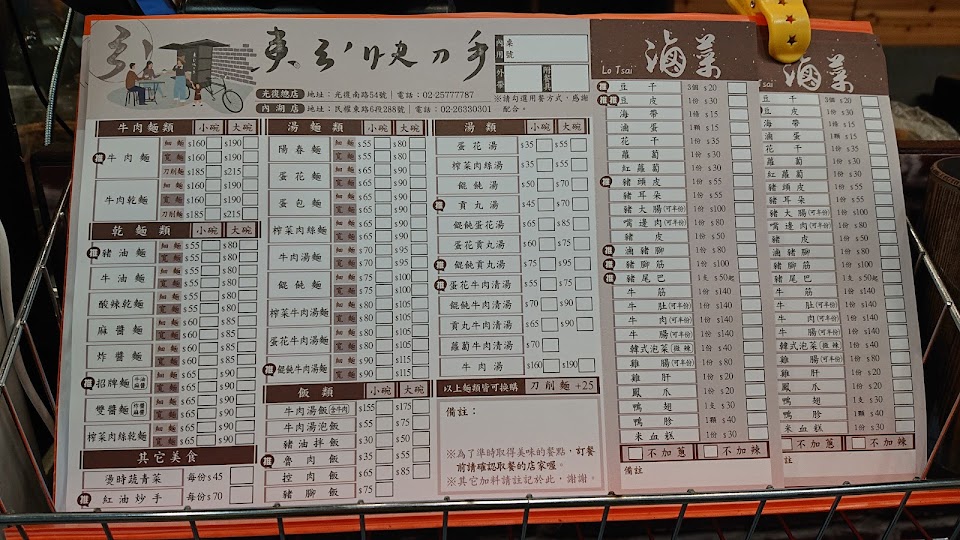 東引快刀手
內用 桌
外帶 附餐具
※請勾選用餐方式,感謝配合。
光復總店 地址:光復南路54號 | 電話:02-25777787
內湖店 地址:民權東路6段288號 | 電話:02-26330301
牛肉麵類 小碗 大碗
推 牛肉麵 細麵 $160 $190
寬麵 $160 $190
刀削麵 $185 $215
牛肉乾麵 細麵 $160 $190
寬麵 $160 $190
刀削麵 $185 $215
乾麵類 小碗 大碗
推 豬油麵 細麵 $55 $80
寬麵 $55 $80
牛油麵 細麵 $55 $80
寬麵 $55 $80
酸辣乾麵 細麵 $55 $80
寬麵 $55 $80
麻醬麵 細麵 $60 $85
寬麵 $60 $85
炸醬麵 細麵 $60 $85
寬麵 $60 $85
推 招牌麵 牛油 麻醬 細麵 $65 $90
寬麵 $65 $90
雙醬麵 炸醬 麻醬 細麵 $65 $90
寬麵 $65 $90
榨菜肉絲乾麵 細麵 $65 $90
寬麵 $65 $90
其它美食
燙時蔬青菜 每份$45
推 紅油炒手 每份$70
湯麵類 小碗 大碗
陽春麵 細麵 $55 $80
寬麵 $55 $80
蛋花麵 細麵 $65 $90
寬麵 $65 $90
蛋包麵 細麵 $65 $90
寬麵 $65 $90
榨菜肉絲麵 細麵 $65 $90
寬麵 $65 $90
牛肉湯麵 細麵 $70 $95
寬麵 $70 $95
餛飩麵 細麵 $75 $100
寬麵 $75 $100
榨菜牛肉湯麵 細麵 $80 $105
寬麵 $80 $105
蛋花牛肉湯麵 細麵 $80 $105
寬麵 $80 $105
推 餛飩牛肉湯麵 細麵 $90 $115
寬麵 $90 $115
飯類 小碗 大碗
牛肉湯飯(含牛肉) $155 $175
牛肉湯泡飯 $55 $75
豬油拌飯 $30 $50
推 魯肉飯 $35 $55
控肉飯 $65 $85
豬腳飯 $75
湯類 小碗 大碗
蛋花湯 $35 $55
榨菜肉絲湯 $35 $55
餛飩湯 $50 $70
推 貢丸湯 $45 $70
餛飩蛋花湯 $65 $85
蛋花貢丸湯 $60 $75
推 餛飩貢丸湯 $75 $90
推 蛋花牛肉清湯 $55 $75
餛飩牛肉清湯 $70 $90
貢丸牛肉清湯 $65 $90
蘿蔔牛肉清湯 $70
牛肉湯 $160 $190
以上麵類皆可換購 刀削麵 +25
備註:
※為了準時取得美味的餐點,訂餐前請確認取餐的店家喔。
※其它加料請註記於此,謝謝。
Lo Tsai 滷菜
推 豆干 3個 $20
推 推 豆皮 1份 $30
海帶 1份 $15
滷蛋 1顆 $15
花干 1份 $35
蘿蔔 1份 $30
紅蘿蔔 1份 $30
推 豬頭皮 1份 $55
豬耳朵 1份 $55
豬大腸(可半份) 1份 $100
嘴邊肉(可半份) 1份 $80
豬皮 1份 $50
推 滷豬腳 1份 $80
推 豬腳筋 1份 $100
推 豬尾巴 1支 $50起
牛筋 1份 $140
牛肚(可半份) 1份 $140
牛肉(可半份) 1份 $140
牛腸(可半份) 1份 $140
韓式泡菜(微辣) 1份 $40
雞腸(可半份) 1份 $80
雞肝 1份 $20
鳳爪 1份 $20
鴨翅 1支 $30
鴨胗 1顆 $40
米血糕 1份 $30
不加蔥 不加辣
備註
Tsai 滷菜
豆干 3個 $20
豆皮 1份 $30
海帶 1份 $15
滷蛋 1顆 $15
花干 1份 $35
蘿蔔 1份 $30
紅蘿蔔 1份 $30
豬頭皮 1份 $55
豬耳朵 1份 $55
豬大腸(可半份) 1份 $100
嘴邊肉(可半份) 1份 $80
豬皮 1份 $50
滷豬腳 1份 $80
豬腳筋 1份 $100
豬尾巴 1支 $50起
牛筋 1份 $140
牛肚(可半份) 1份 $140
牛肉(可半份) 1份 $140
牛腸(可半份) 1份 $140
韓式泡菜(微辣) 1份 $40
雞腸(可半份) 1份 $80
雞肝 1份 $20
鳳爪 1份 $20
鴨翅 1支 $30
鴨胗 1顆 $40
米血糕 1份 $30
不加蔥 不加辣
備註